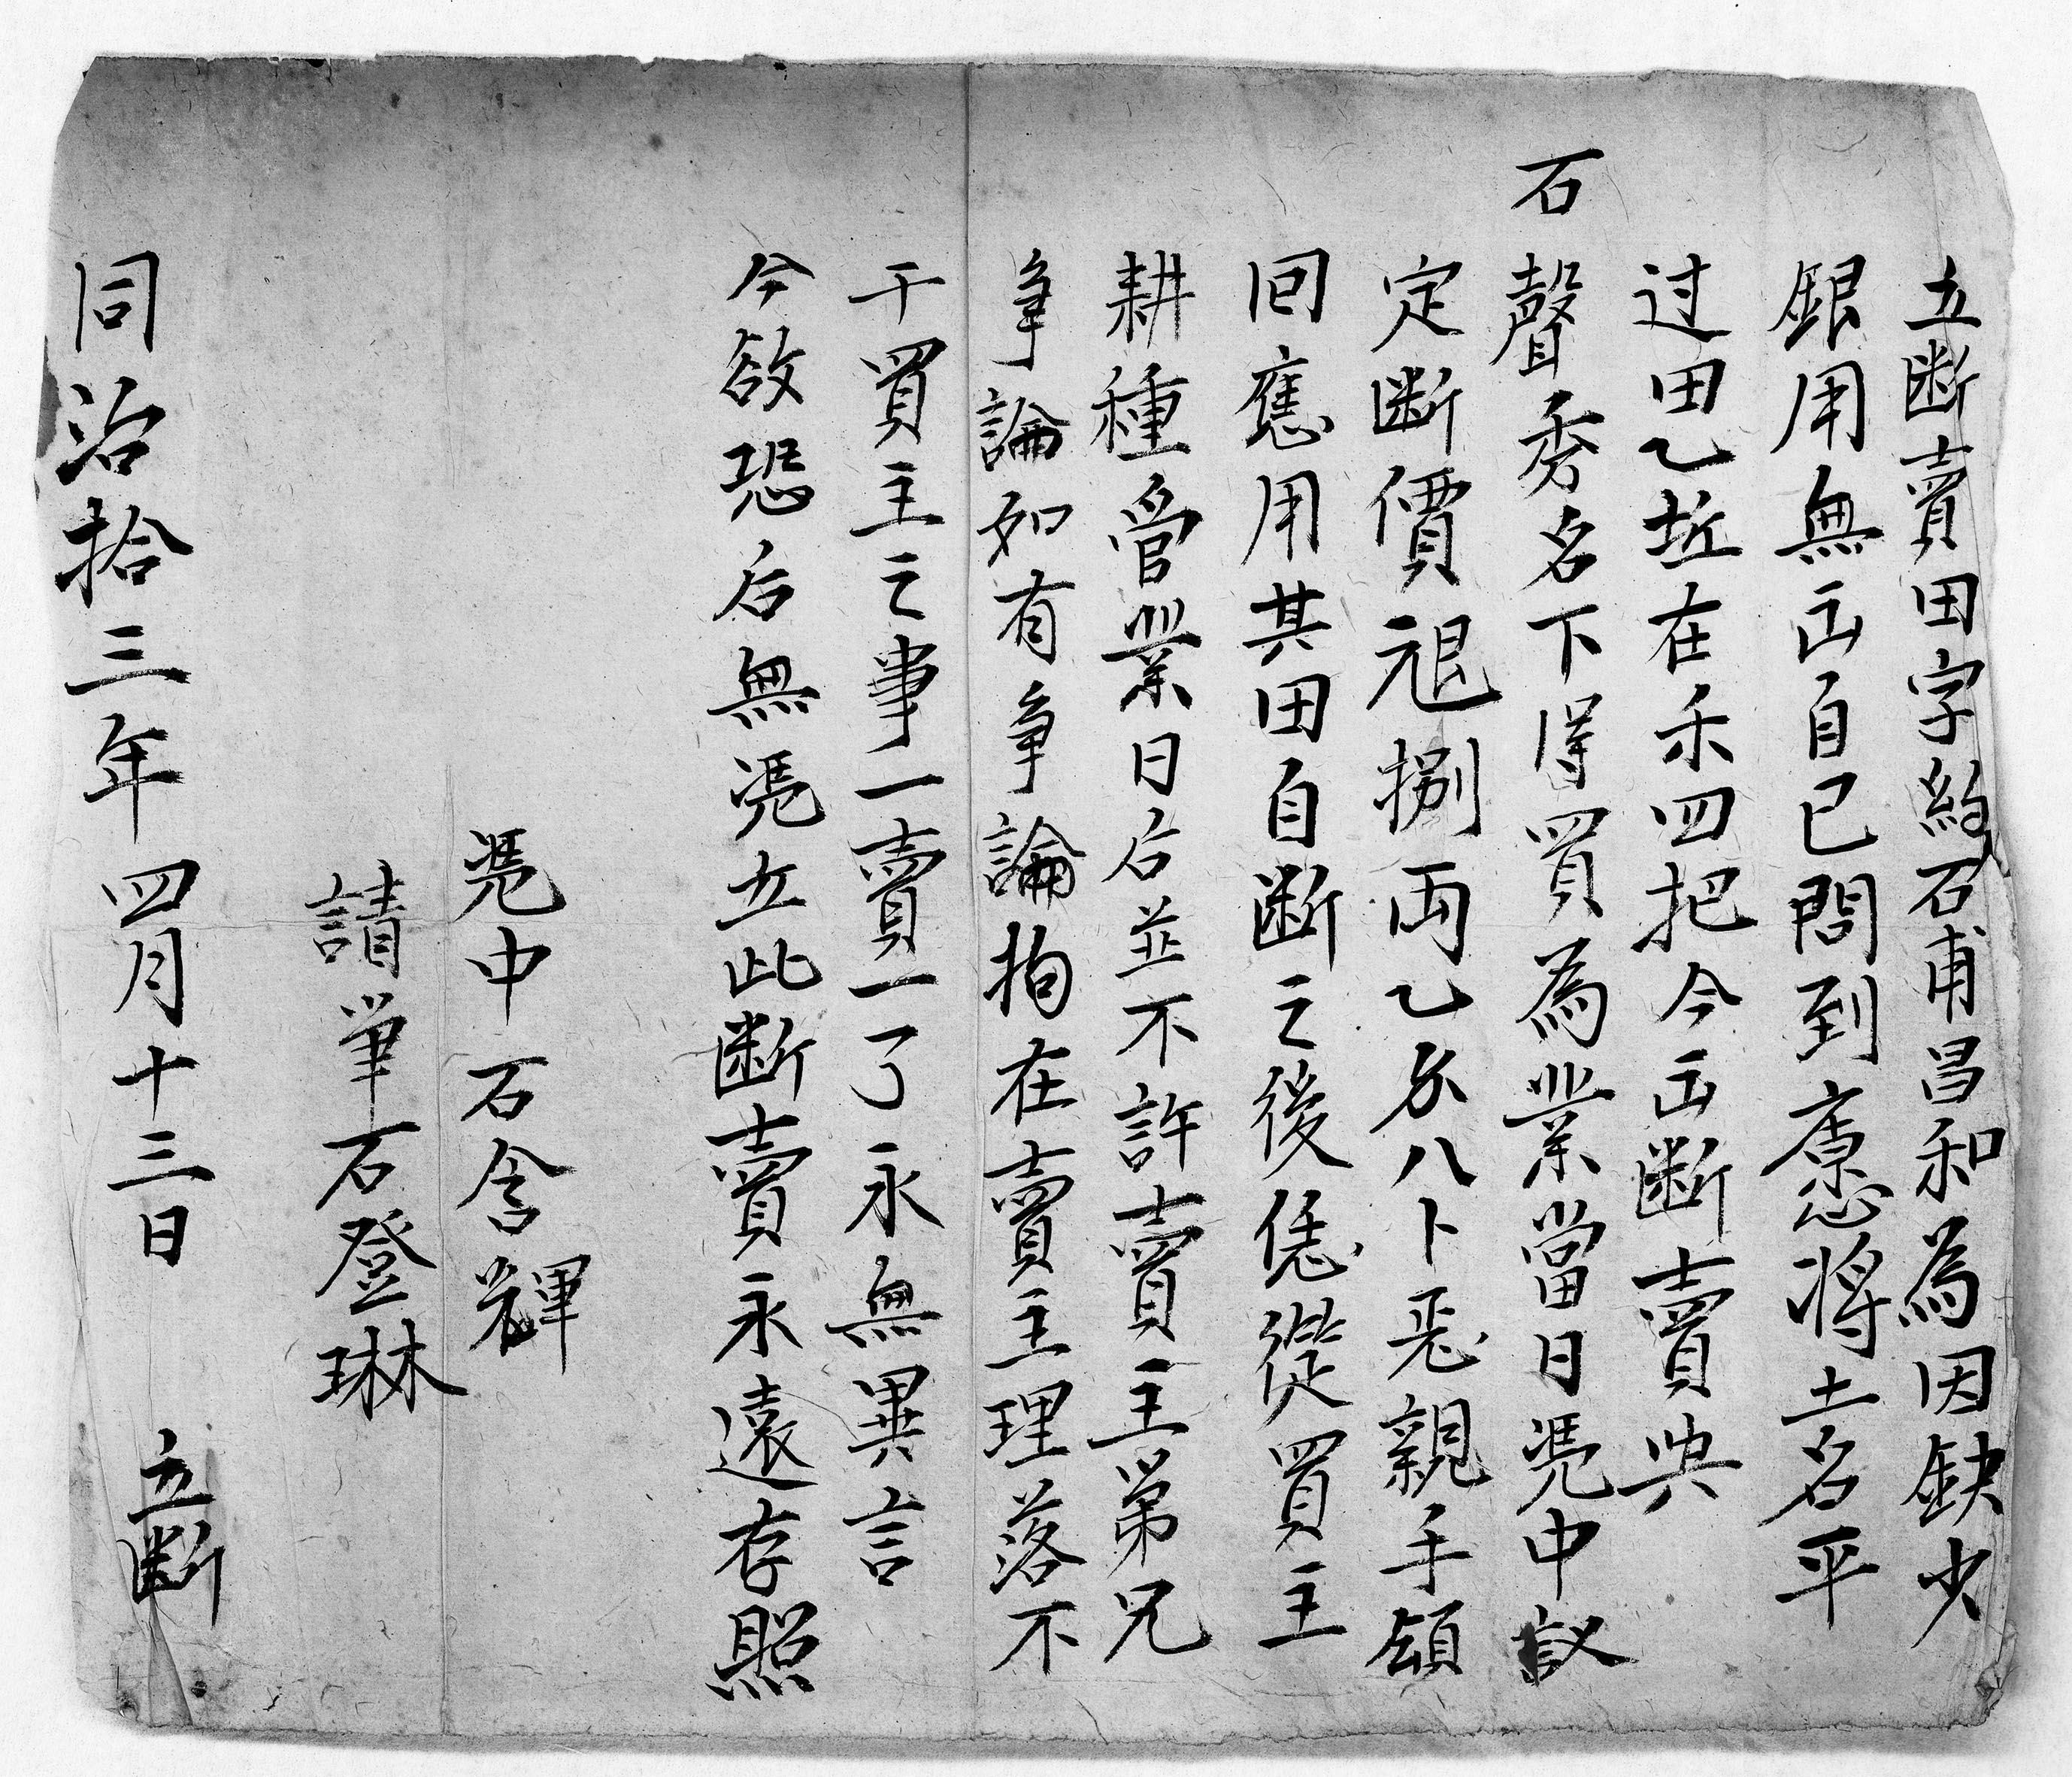 立断賣田字約石甫昌和為因缺少
銀用無出自己問到應將土名平
过田乙坵在禾四把今出断賣與
石聲秀名下得買為業當日憑中議
定断價艮捌両乙分八卜恶親手領
回應用其田自断之後恁從買主
耕種管業日后並不許賣主弟兄
爭論如有爭論拘在賣主理落不
干買主之事一賣一了永無異言
今欲恐后無憑立此断賣永遠存照
憑中石含輝
請筆石登琳
同治拾三年四月十三日 立断